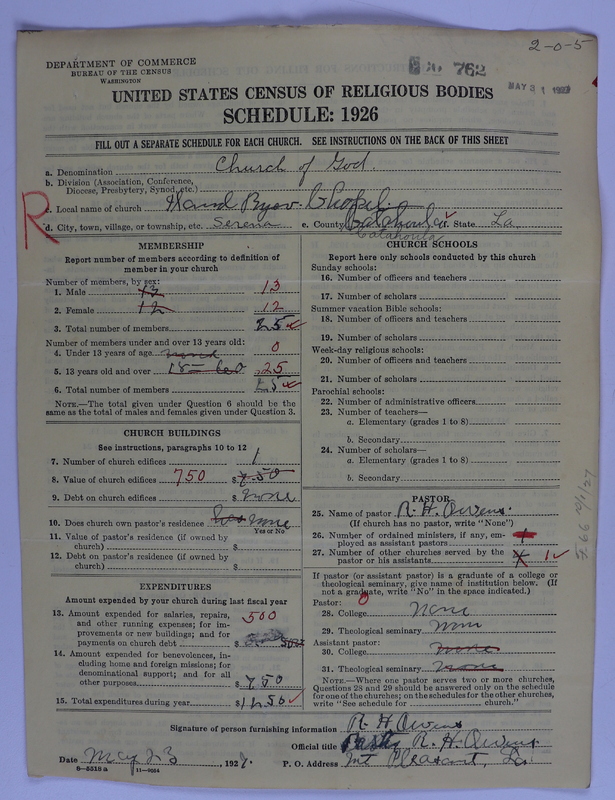 2-0-5
DEPARTMENT OF COMMERCE
BUREAU OF THE CENSUS
WASHINGTON
762
MAY 31 1927
UNITED STATES CENSUS OF RELIGIOUS BODIES
SCHEDULE: 1926
FILL OUT A SEPARATE SCHEDULE FOR EACH CHURCH. SEE INSTRUCTIONS ON THE BACK OF THIS SHEET
a. Denomination Church of God.
b. Division (Association, Conference,
Diocese, Presbytery, Synod, etc.)
R
c. Local name of church Chapel
d. City, town, village, or township, etc. Serena e. County Catahoula f. State La.
Catahoula
MEMBERSHIP
Report number of members according to definition of
member in your church
Number of members, by sex:
1. Male 13 13
2. Female 12 12
3. Total number of members 25
Number of members under and over 13 years old:
4. Under 13 years of age none 0
5. 13 years old and over 25
6. Total number of members 25
NOTE.—The total given under Question 6 should be the
same as the total of males and females given under Question 3.
CHURCH BUILDINGS
See instructions, paragraphs 10 to 12
7. Number of church edifices 1
8. Value of church edifices 750 $ 7.50
9. Debt on church edifices $ none
10. Does church own pastor's residence none
Yes or No
11. Value of pastor's residence (if owned by
church) $
12. Debt on pastor's residence (if owned by
church) $
EXPENDITURES
Amount expended by your church during last fiscal year
13. Amount expended for salaries, repairs,
and other running expenses; for im-
provements or new buildings; and for
payments on church debt 500 $
14. Amount expended for benevolences, in-
cluding home and foreign missions; for
denominational support; and for all
other purposes $ 750
15. Total expenditures during year $ 1250
CHURCH SCHOOLS
Report here only schools conducted by this church
Sunday schools:
16. Number of officers and teachers
17. Number of scholars
Summer vacation Bible schools:
18. Number of officers and teachers
19. Number of scholars
Week-day religious schools:
20. Number of officers and teachers
21. Number of scholars
Parochial schools:
22. Number of administrative officers
23. Number of teachers—
a. Elementary (grades 1 to 8)
b. Secondary
24. Number of scholars—
a. Elementary (grades 1 to 8)
b. Secondary
PASTOR
25. Name of pastor R. H. Owens
(If church has no pastor, write "None")
26. Number of ordained ministers, if any, em-
ployed as assistant pastors
27. Number of other churches served by the
pastor or his assistants 1
If pastor (or assistant pastor) is a graduate of a college or
theological seminary, give name of institution below. (If
not a graduate, write "No" in the space indicated.)
Pastor: 0
28. College none
29. Theological seminary none
Assistant pastor:
30. College none
31. Theological seminary none
NOTE.—Where one pastor serves two or more churches,
Questions 28 and 29 should be answered only on the schedule
for one of the churches; on the schedules for the other churches,
write "See schedule for church."
Signature of person furnishing information R. H. Owens
Official title R. H. Owens
Date May 23, 1927. P. O. Address Mt Pleasant, La.
8—5518 a 11—9054